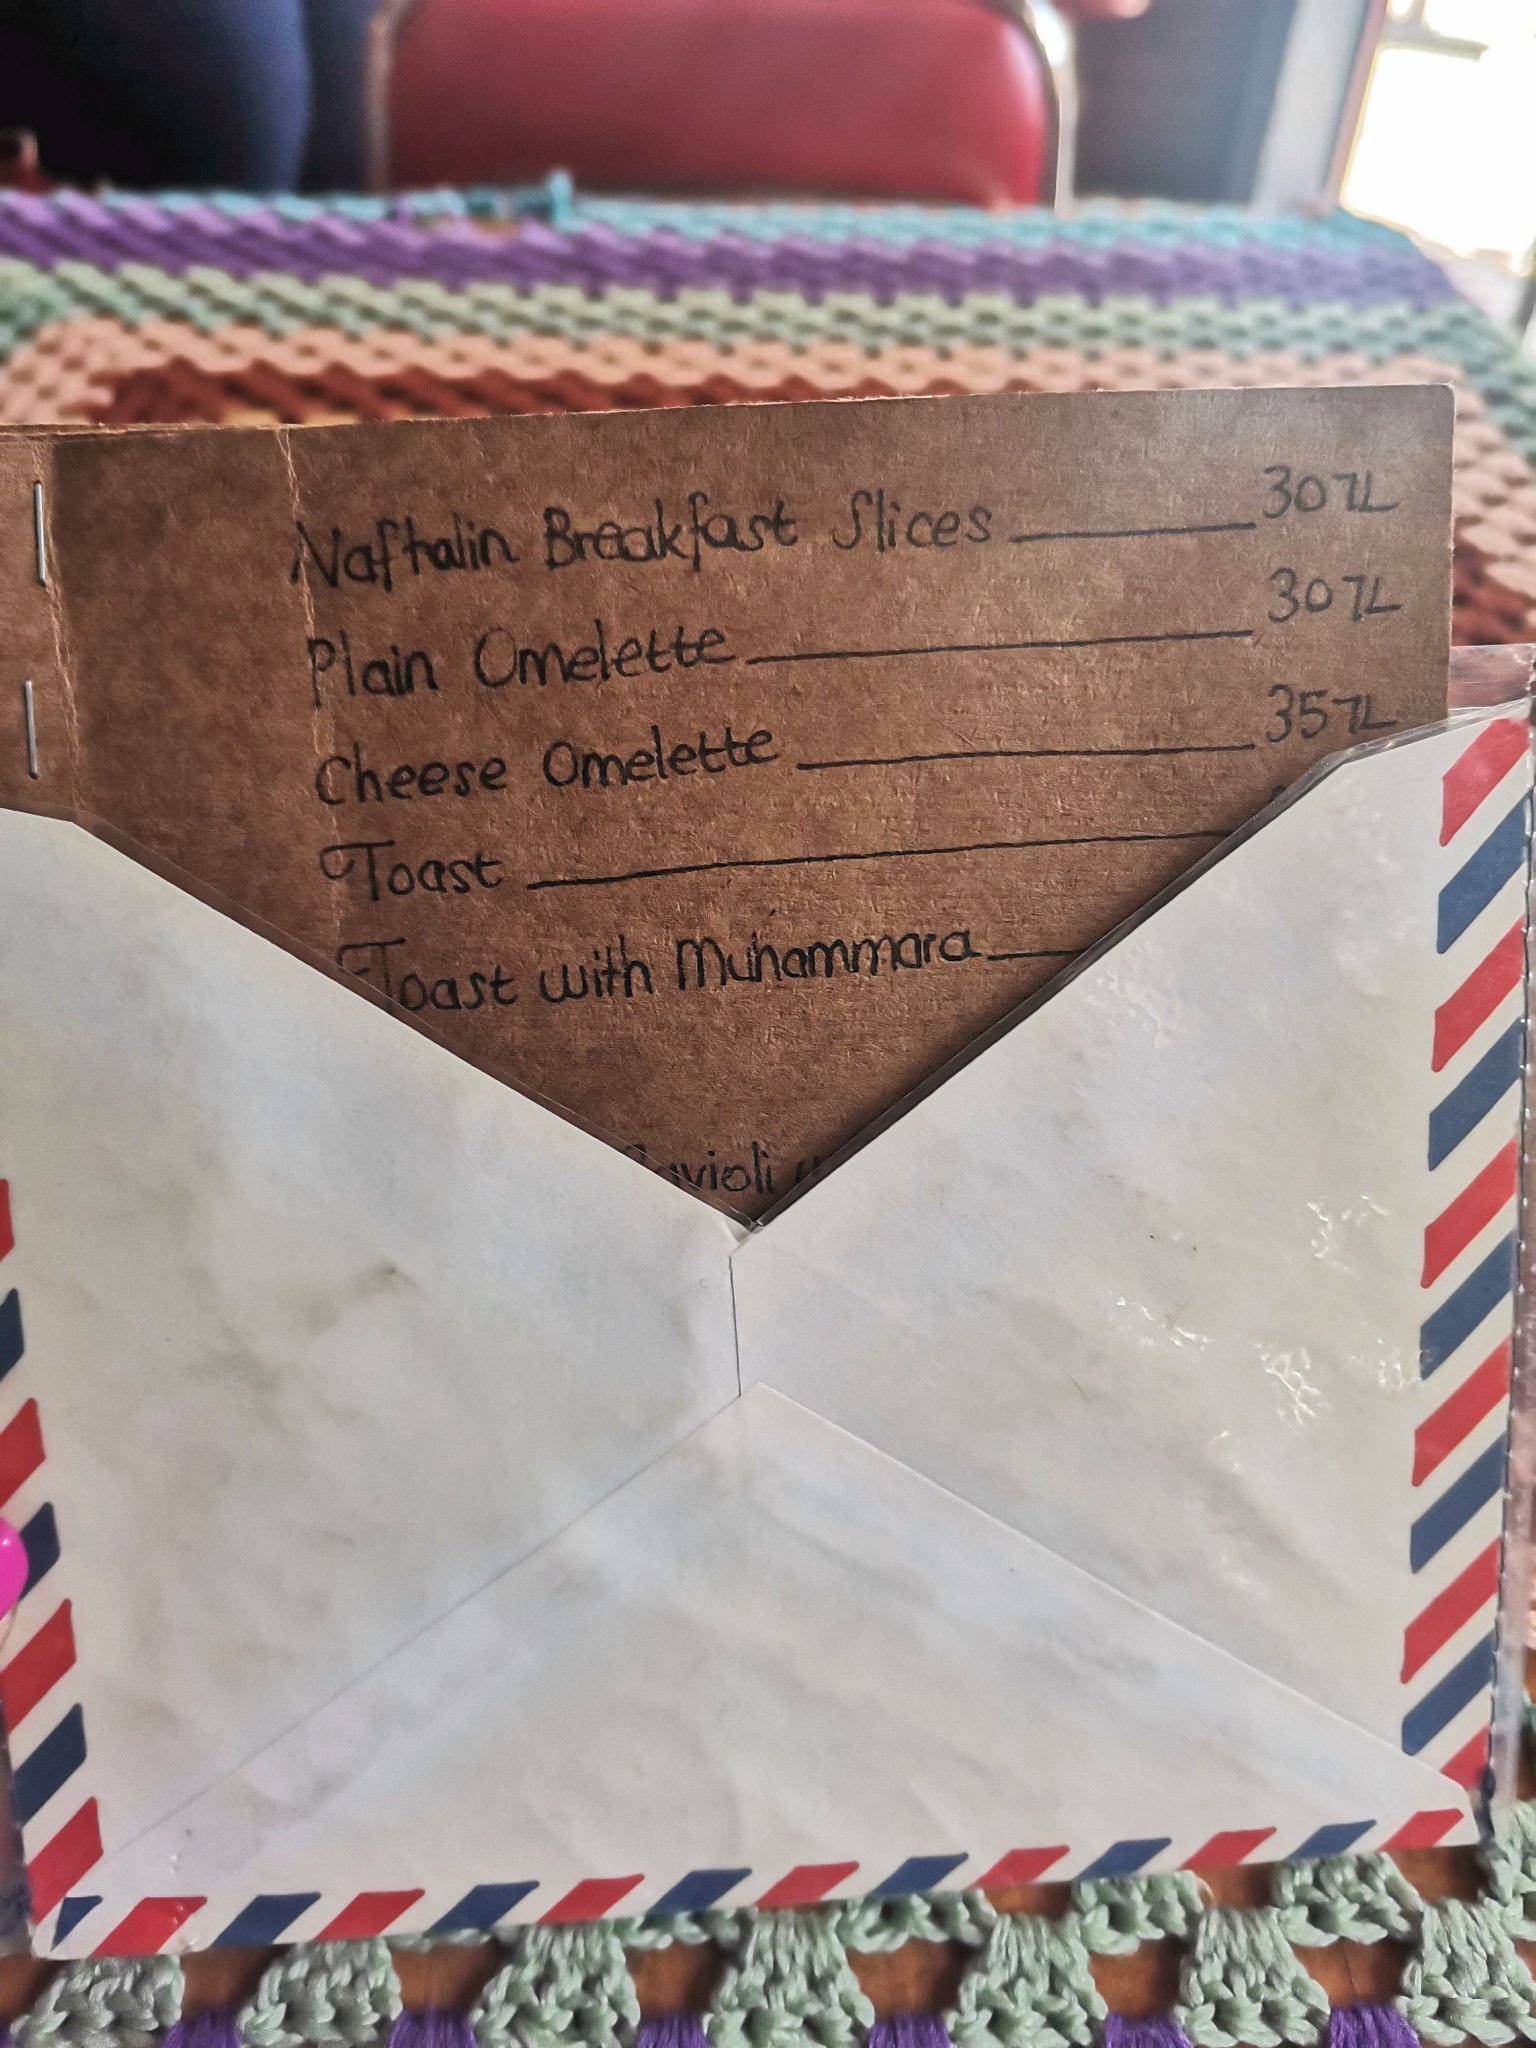 Naftalin Breakfast Slices 30TL
Plain Omelette 30TL
Cheese Omelette 35TL
Toast
Toast with Muhammara
Ravioli